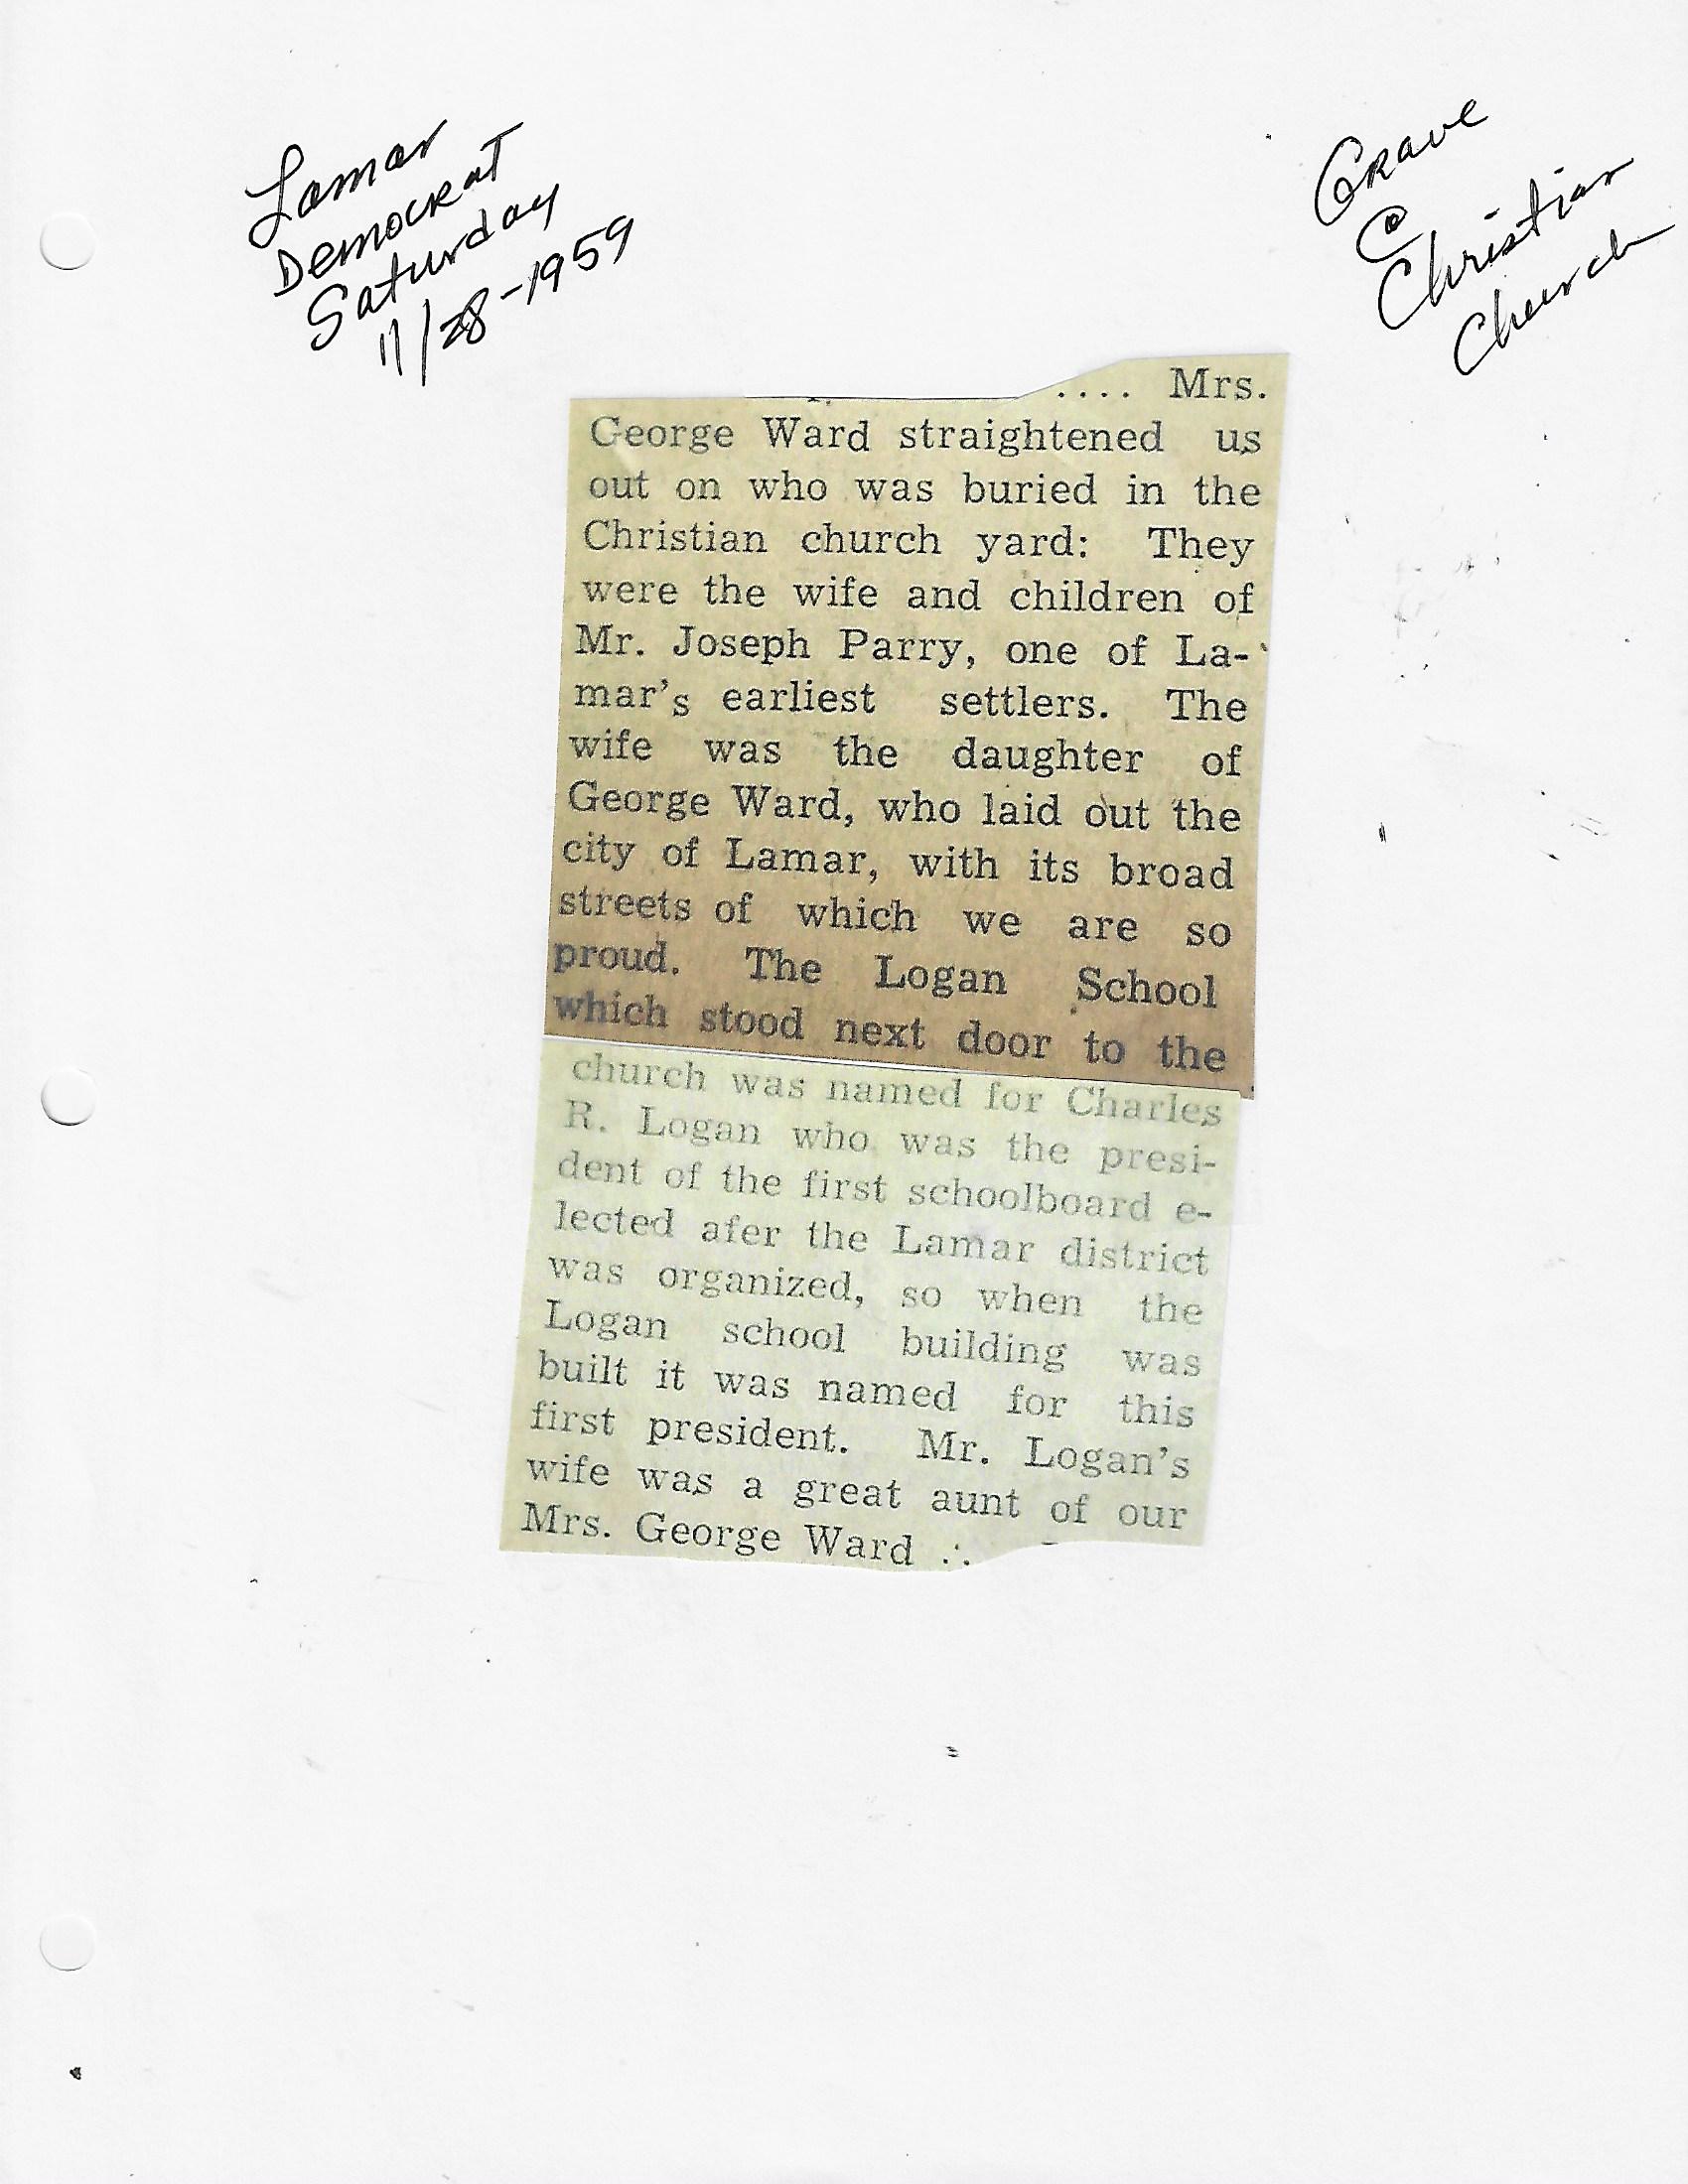 Lamar
Democrat
Saturday
11/28-1959
Grave
@
Christian
Church
.... Mrs.
George Ward straightened us
out on who was buried in the
Christian church yard: They
were the wife and children of
Mr. Joseph Parry, one of La-
mar's earliest settlers. The
wife was the daughter of
George Ward, who laid out the
city of Lamar, with its broad
streets of which we are so
proud. The Logan School
which stood next door to the
church was named for Charles
R. Logan who was the presi-
dent of the first schoolboard e-
lected afer the Lamar district
was organized, so when the
Logan school building was
built it was named for this
first president. Mr. Logan's
wife was a great aunt of our
Mrs. George Ward .·.